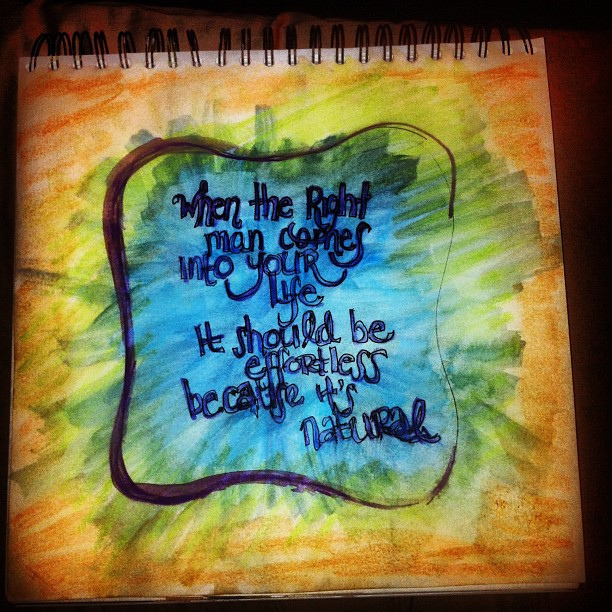 When the Right
man comes
into your
life
It should be
effortless
because it's
natural